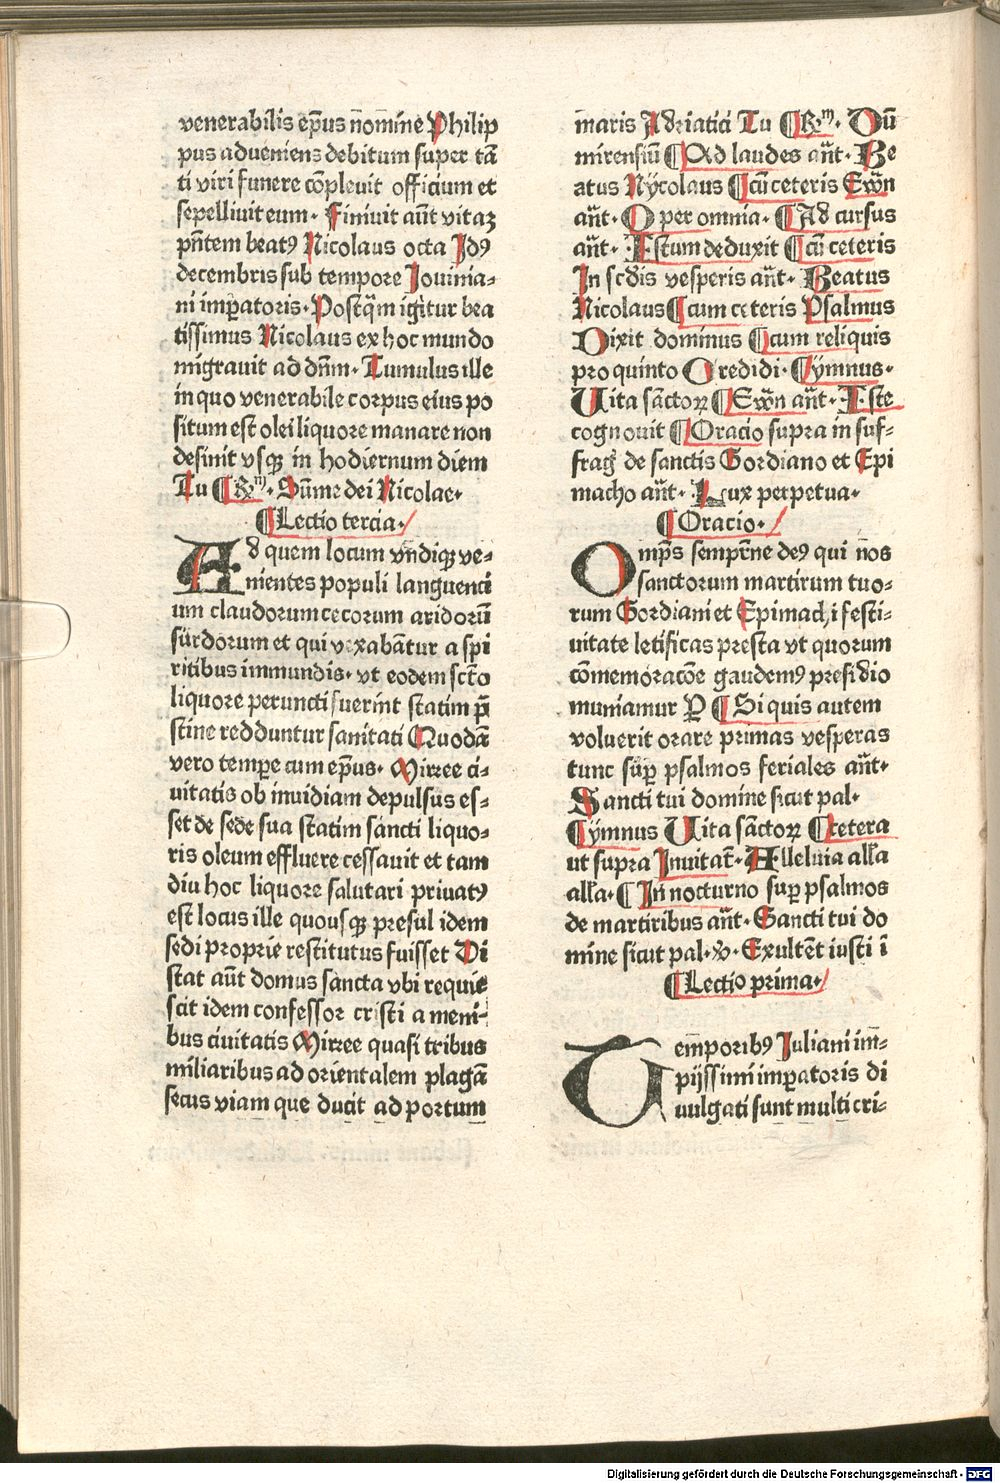 venerabilis ep̄us nomīne Philip
pus adueniens debitum super tā
ti viri funere cōpleuit officium et
sepelliuit eum. Finiuit aūt vitaꝫ
pn̄tem beatꝰ Nicolaus octa Idꝰ
decembris sub tempore Iouinia⸗
ni imꝑatoris. Postq̄m igitur bea
tissimus Nicolaus ex hoc mundo
migrauit ad dn̄m. Tumulus ille
in quo venerabile corpus eius po
situm est olei liquore manare non
desinit vsqꝫ in hodiernum diem
Tu ¶ R̄m. Sūme dei Nicolae.
¶ Lectio tercia.
Ad quem locum vndiqꝫ ve⸗
nientes populi languenci
um claudorum cecorum aridorū
surdorum et qui vexabātur a spi
ritibus immundis. vt eodem scto
liquore peruncti fuerint statim p̄
stine redduntur sanitati Quodā
vero tempe cum ep̄us. Mirree ci⸗
uitatis ob inuidiam depulsus es⸗
set de sede sua statim sancti liquo⸗
ris oleum effluere cessauit et tam
diu hoc liquore salutari priuatꝰ
est locus ille quousqꝫ presul idem
sedi proprie restitutus fuisset Di
stat aūt domus sancta vbi requie
scit idem confessor cristi a meni⸗
bus ciuitatis Mirree quasi tribus
miliaribus ad orientalem plagā
secus viam que ducit ad portum
maris Adriatici Tu ¶ R̄m. Dū
mirensiū ¶ Ad laudes an̄t. Be
atus Nycolaus ¶ cū ceteris Ewn̄
an̄t. O per omnia. ¶ Ad cursus
an̄t. Istum deduxit ¶ cū ceteris
In scd̄is vesperis an̄t. Beatus
Nicolaus ¶ cum ceteris Psalmus
Dixit dominus ¶ cum reliquis
pro quinto Credidi. ¶ ymnus.
Uita sāctoꝝ ¶ Ewn̄ an̄t. Iste
cognouit ¶ Oracio supra in suf⸗
fraḡ de sanctis Gordiano et Epi
macho an̄t. Lux perpetua.
¶ Oracio.
Omp̄s semprn̄e deꝰ qui nos
sanctorum martirum tuo⸗
rum Gordiani et Epimachi festi⸗
uitate letificas presta vt quorum
cōmemoracōe gaudemꝰ presidio
muniamur P ¶ Si quis autem
voluerit orare primas vesperas
tunc suꝑ psalmos feriales an̄t.
Sancti tui domine sicut pal.
¶ ymnus Uita sāctoꝝ ¶ cetera
ut supra Inuitat̄. Alleluia all̄a
all̄a. ¶ In nocturno suꝑ psalmos
de martiribus an̄t. Sancti tui do
mine sicut pal. ꝟ. Exultēt iusti ī
¶ Lectio prima.
Temporibꝰ Iuliani im̄⸗
pijssimi imꝑatoris di
uulgati sunt multi cri⸗
Digitalisierung gefördert durch die Deutsche Forschungsgemeinschaft - DFG